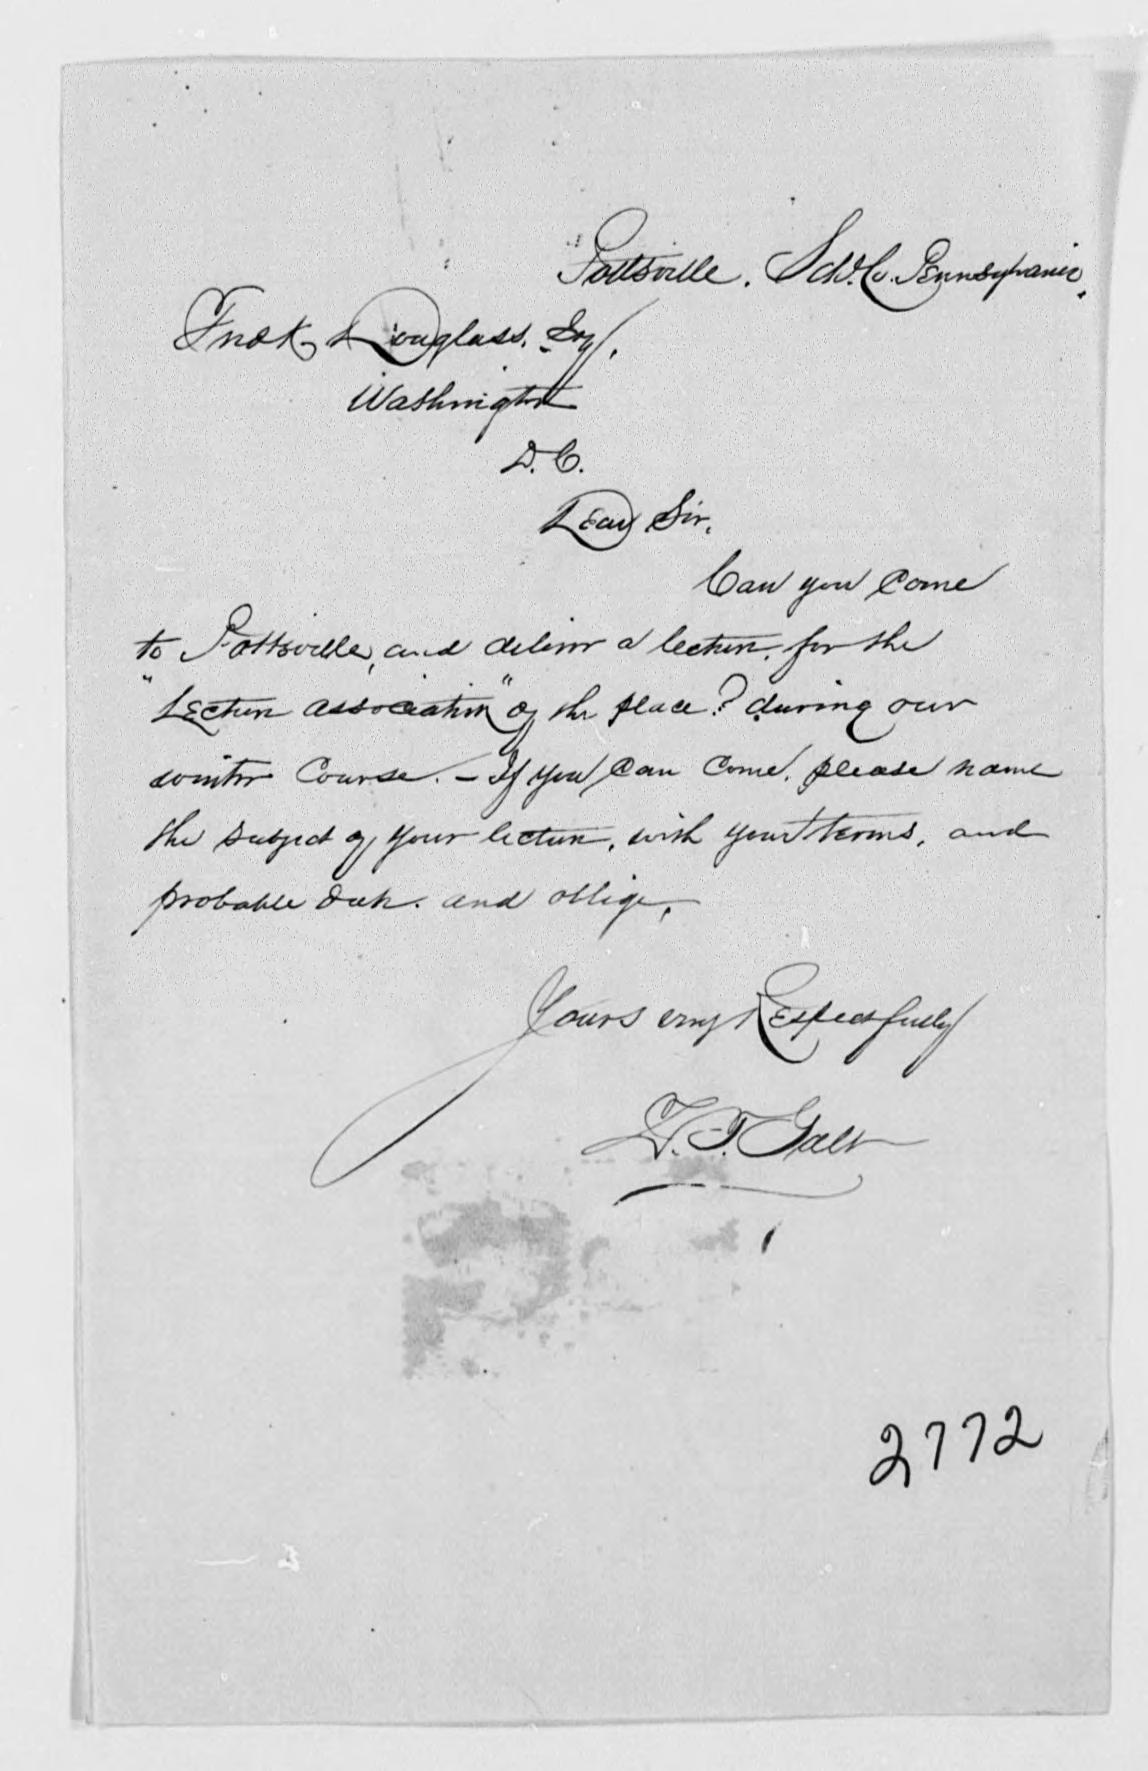 Pottsville. Sch. Co. Pennsylvania.
Fredk Douglass. Esq.
Washington
D. C.
Dear Sir.
Can you come
to Pottsville, and deliver a lecture, for the
"Lecture Association" of the place? during our
winter Course. - If you can come, please name
the subject of your lecture, with your terms, and
probable date. and oblige,
Yours very Respectfully
T. Galt
2772